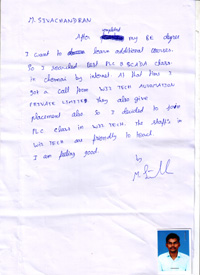 M. SIVACHANDRAN
After completed my BE degree
I want to learn additional courses.
So I searched best PLC & SCADA class
in chennai by internet. At that time I
got a call from WIN TECH AUTOMATION
PRIVATE LIMITED they also give
placement also. So I decided to
PLC class in WIN TECH. The staffs in
WIN TECH are friendly to teach.
I am feeling good.
by
M.